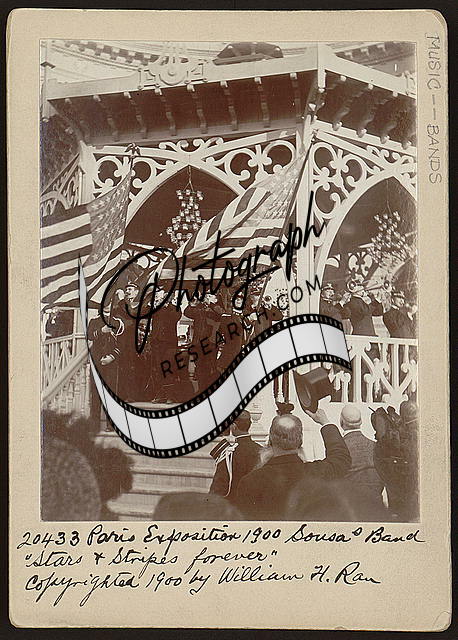 MUSIC--BANDS
Photograph
RESEARCH.COM
20433 Paris Exposition 1900 Sousa's Band
"Stars & Stripes forever"
Copyrighted 1900 by William H. Rau